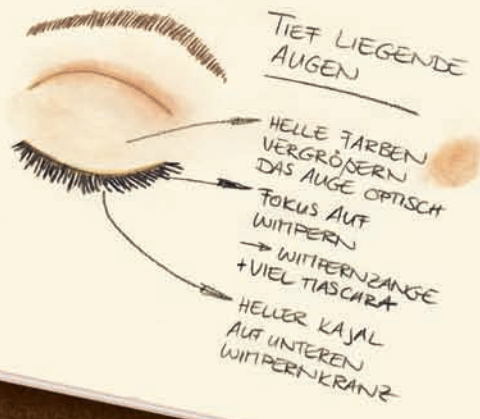 TIEF LIEGENDE
AUGEN
HELLE FARBEN
VERGRÖßERN
DAS AUGE OPTISCH
FOKUS AUF
WIMPERN
→ WIMPERNZANGE
+ VIEL MASCARA
HELLER KAJAL
AUF UNTEREN
WIMPERNKRANZ